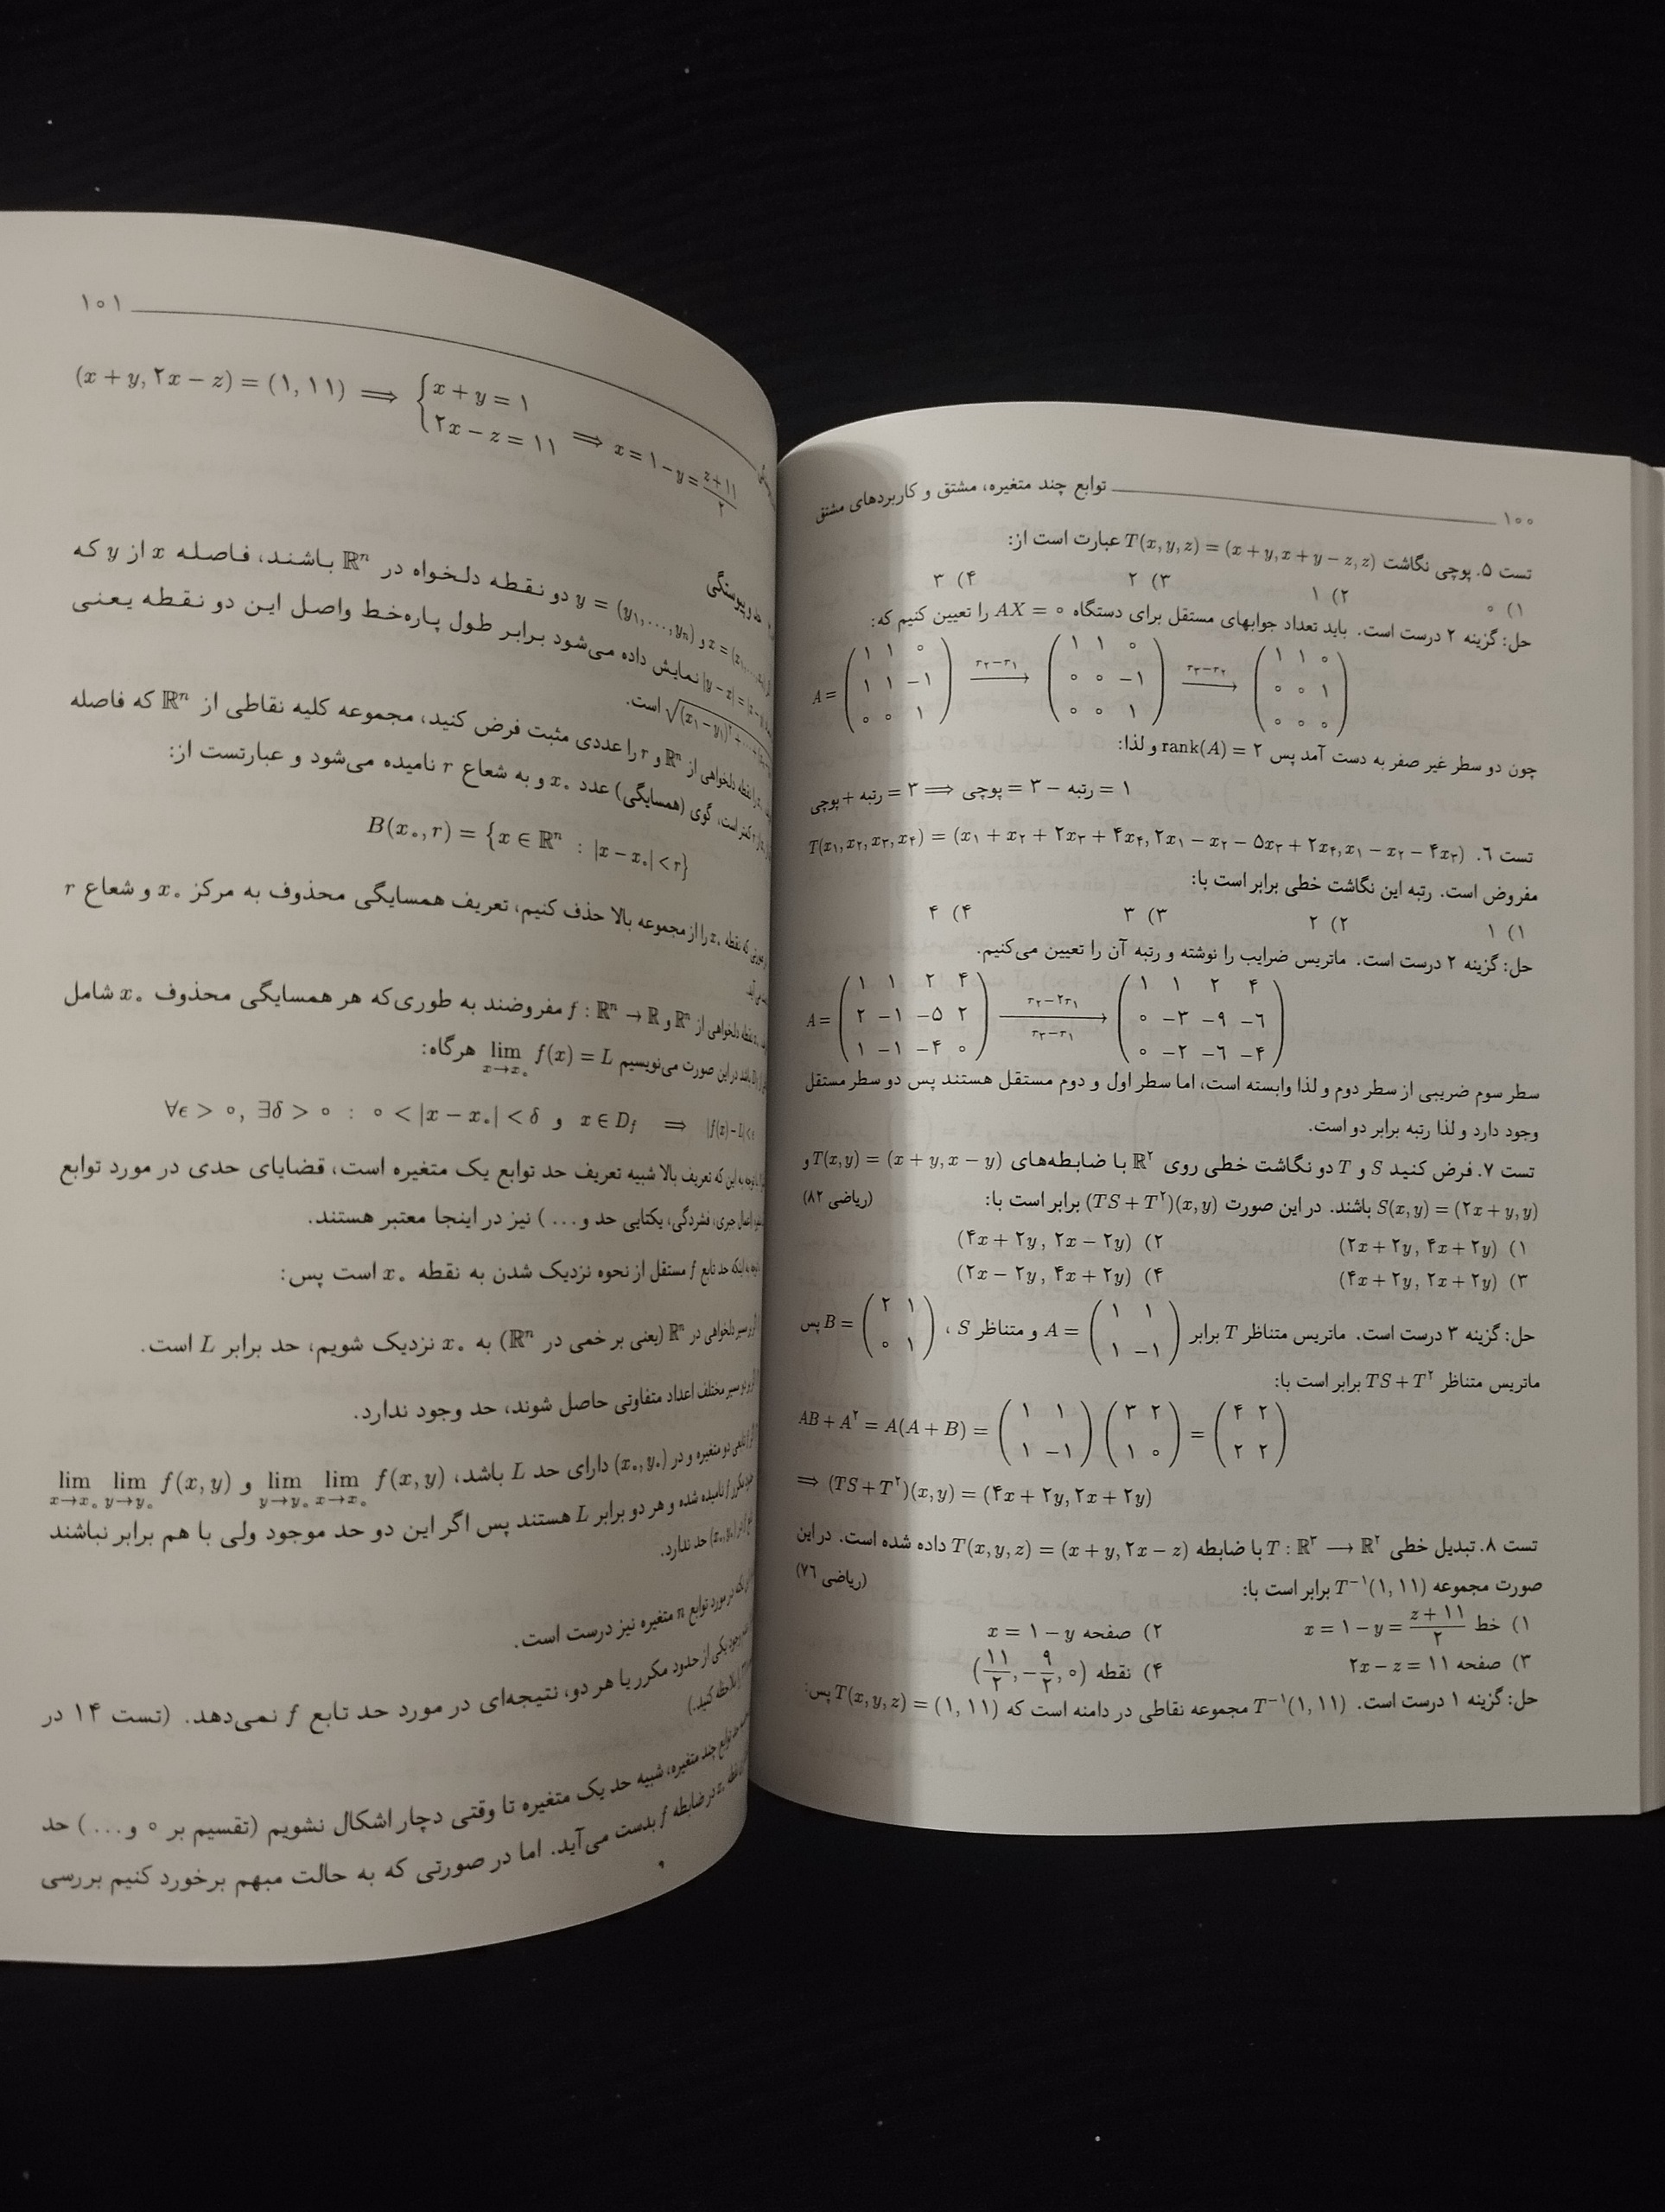 ۱۰۰ توابع چند متغیره، مشتق و کاربردهای مشتق
تست ۵. پوچی نگاشت T(x,y,z) = (x+y, x+y−z, z) عبارت است از:
۱) ۰ ۲) ۱ ۳) ۲ ۴) ۳
حل: گزینه ۲ درست است. باید تعداد جوابهای مستقل برای دستگاه AX = ۰ را تعیین کنیم که:
A = (۱ ۱ ۰ ; ۱ ۱ −۱ ; ۰ ۰ ۱) r₂−r₁ ⟶ (۱ ۱ ۰ ; ۰ ۰ −۱ ; ۰ ۰ ۱) r₃−r₂ ⟶ (۱ ۱ ۰ ; ۰ ۰ ۱ ; ۰ ۰ ۰)
چون دو سطر غیر صفر به دست آمد پس rank(A) = ۲ و لذا:
۱ = رتبه − ۳ = پوچی ⟸ ۳ = رتبه + پوچی
تست ۶. T(x₁,x₂,x₃,x₄) = (x₁ + x₂ + ۲x₃ + ۴x₄, ۲x₁ − x₂ − ۵x₃ + ۲x₄, x₁ − x₂ − ۴x₃)
مفروض است. رتبه این نگاشت خطی برابر است با:
۱) ۱ ۲) ۲ ۳) ۳ ۴) ۴
حل: گزینه ۲ درست است. ماتریس ضرایب را نوشته و رتبه آن را تعیین می‌کنیم.
A = (۱ ۱ ۲ ۴ ; ۲ −۱ −۵ ۲ ; ۱ −۱ −۴ ۰) r₂−۲r₁ ⟶ r₃−r₁ (۱ ۱ ۲ ۴ ; ۰ −۳ −۹ −۶ ; ۰ −۲ −۶ −۴)
سطر سوم ضریبی از سطر دوم و لذا وابسته است، اما سطر اول و دوم مستقل هستند پس دو سطر مستقل
وجود دارد و لذا رتبه برابر دو است.
تست ۷. فرض کنید S و T دو نگاشت خطی روی ℝ² با ضابطه‌های T(x,y) = (x+y, x−y) و
S(x,y) = (۲x+y, y) باشند. در این صورت (TS+T²)(x,y) برابر است با: (ریاضی ۸۲)
۱) (۲x+۲y, ۴x+۲y) ۲) (۴x+۲y, ۲x−۲y)
۳) (۴x+۲y, ۲x+۲y) ۴) (۲x−۲y, ۴x+۲y)
حل: گزینه ۳ درست است. ماتریس متناظر T برابر A = (۱ ۱ ; ۱ −۱) و متناظر S، B = (۲ ۱ ; ۰ ۱) پس
ماتریس متناظر TS+T² برابر است با:
AB+A² = A(A+B) = (۱ ۱ ; ۱ −۱)(۳ ۲ ; ۱ ۰) = (۴ ۲ ; ۲ ۲)
⟹ (TS+T²)(x,y) = (۴x+۲y, ۲x+۲y)
تست ۸. تبدیل خطی T : ℝ³ ⟶ ℝ² با ضابطه T(x,y,z) = (x+y, ۲x−z) داده شده است. در این
صورت مجموعه T⁻¹(۱, ۱۱) برابر است با: (ریاضی ۷۶)
۱) خط x = ۱−y = (z+۱۱)/۲ ۲) صفحه x = ۱−y
۳) صفحه ۲x−z = ۱۱ ۴) نقطه (۱۱/۲, −۹/۲, ۰)
حل: گزینه ۱ درست است. T⁻¹(۱, ۱۱) مجموعه نقاطی در دامنه است که T(x,y,z) = (۱, ۱۱) پس:
۱۰۱
(x+y, ۲x−z) = (۱, ۱۱) ⟹ { x+y = ۱ ; ۲x−z = ۱۱ ⟹ x = ۱−y = (z+۱۱)/۲
حد و پیوستگی
x = (x₁,…, و y = (y₁,…,yₙ) دو نقطه دلخواه در ℝⁿ باشند، فاصله x از y که
|y−x| = نمایش داده می‌شود برابر طول پاره‌خط واصل این دو نقطه یعنی
√(x₁−y₁)²+…+ است.
نقطه دلخواهی از ℝⁿ و r را عددی مثبت فرض کنید، مجموعه کلیه نقاطی از ℝⁿ که فاصله
کمتر است، گوی (همسایگی) عدد x₀ و به شعاع r نامیده می‌شود و عبارتست از:
B(x₀, r) = {x ∈ ℝⁿ : |x−x₀| < r}
که نقطه x₀ را از مجموعه بالا حذف کنیم، تعریف همسایگی محذوف به مرکز x₀ و شعاع r
نقطه دلخواهی از ℝⁿ و f : ℝⁿ → ℝ مفروضند به طوری‌که هر همسایگی محذوف x₀ شامل
باشد در این صورت می‌نویسیم lim x→x₀ f(x) = L هرگاه:
∀ϵ > ۰, ∃δ > ۰ : ۰ < |x−x₀| < δ و x ∈ D_f ⟹ |f(x)−L| < ϵ
به این که تعریف بالا شبیه تعریف حد توابع یک متغیره است، قضایای حدی در مورد توابع
اعمال جبری، فشردگی، یکتایی حد و…) نیز در اینجا معتبر هستند.
به اینکه حد تابع f مستقل از نحوه نزدیک شدن به نقطه x₀ است پس:
مسیر دلخواهی در ℝⁿ (یعنی بر خمی در ℝⁿ) به x₀ نزدیک شویم، حد برابر L است.
دو مسیر مختلف اعداد متفاوتی حاصل شوند، حد وجود ندارد.
دو متغیره و در (x₀,y₀) دارای حد L باشد، lim y→y₀ lim x→x₀ f(x,y) و lim x→x₀ lim y→y₀ f(x,y)
مکرر f نامیده شده و هر دو برابر L هستند پس اگر این دو حد موجود ولی با هم برابر نباشند
در (x₀,y₀) حد ندارد.
در مورد توابع n متغیره نیز درست است.
وجود یکی از حدود مکرر یا هر دو، نتیجه‌ای در مورد حد تابع f نمی‌دهد. (تست ۱۴ در
ملاحظه کنید.)
توابع چند متغیره، شبیه حد یک متغیره تا وقتی دچار اشکال نشویم (تقسیم بر ۰ و…) حد
نقطه x₀ در ضابطه f بدست می‌آید. اما در صورتی که به حالت مبهم برخورد کنیم بررسی